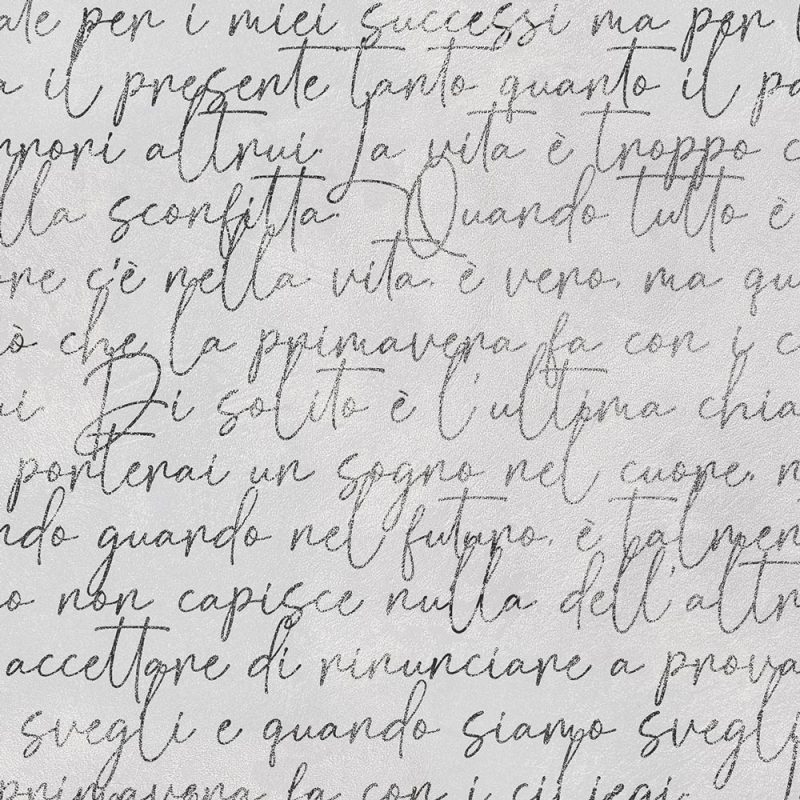 ale per i miei successi ma per
a il presente tanto quanto il pa
errori altrui. La vita è troppo c
lla sconfitta. Quando tutto è
ore c'è nella vita, è vero, ma qu
iò che la primavera fa con i c
ui. Di solito è l'ultima chia
porterai un sogno nel cuore, n
ndo guardo nel futuro, è talmen
o non capisce nulla dell'altr
accettare di rinunciare a prova
svegli e quando siamo svegli
primavera fa con i ciliegi.